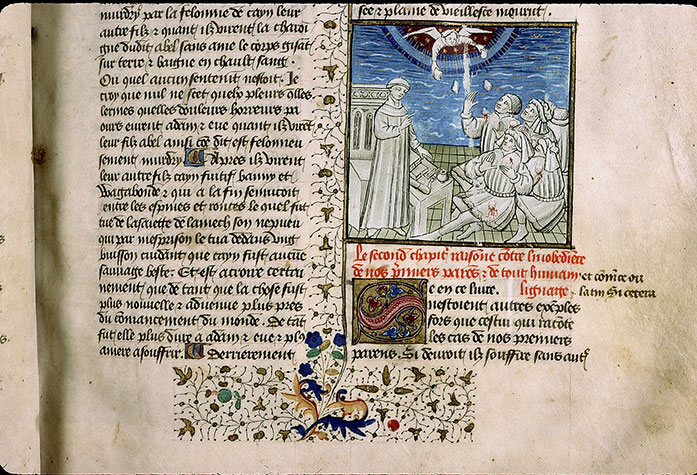 murdry par la felonnie de cayn leur
autre filz & quant ilz virent la charoi
gne dudit abel sans ame le corps gisāt
sur terre & baigne en chault sang
Ou quel aucun sentemt nestoit. Je
croy que nul ne scet quelz pleurs quelles
lermes quelles douleurs horreurs pa
ours eurent adam & eve quant ilz virēt
leur filz abel ainsi cōe dit est felonneu
sement murdry. Apres ilz virent
leur autre filz cayn fuitif banny et
Vagabonde & qui a la fin se muroit
entre les espines et ronces le quel fut
tue de la saiette de lamech son nepveu
qui par mesprison le tua dedans ung
buisson cuidant que cayn fust aucūe
sauvage beste. Et est a croire certai
nement que de tant que la chose fust
plus nouvelle & advenue plus pres
du cōmancement du monde. De tāt
fut elle plus dure a adam & eve & pl9
amere a souffrir. Derrierement
see & plaine de vieillesce mourut.
Le second chapitre raisonne cōtre linobediēce
de nos p̄miers parēs & de tout humain
lignaige et cōmēce ou latin Si cetera
Se en ce livre.
nestoient autres exēples
fors que cestui qui racōte
les cas de nos premiers
parens. Si devroit il souffire sans autr̄